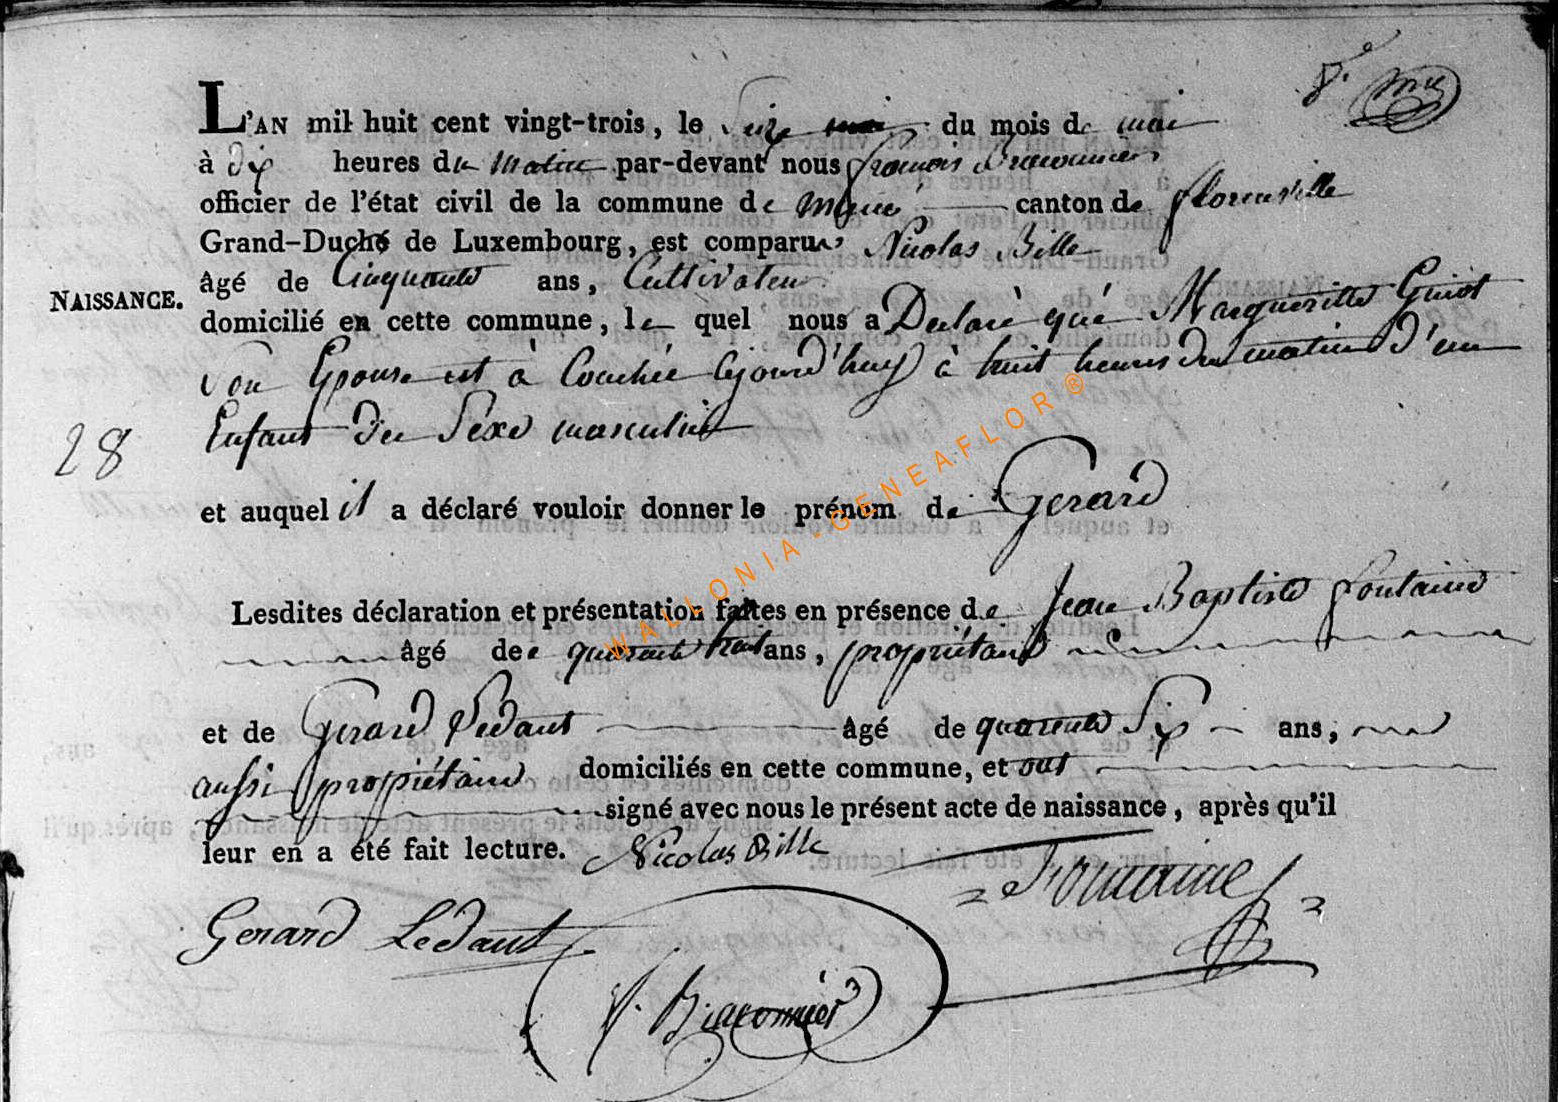 L'AN mil huit cent vingt-trois, le seize mai du mois de mai
à dix heures du matin par-devant nous françois Braconnier
officier de l'état civil de la commune de canton de florenville
Grand-Duché de Luxembourg, est comparu Nicolas Bille
âgé de Cinquante ans, Cultivateur
NAISSANCE.
domicilié en cette commune, le quel nous a Declaré qué Margueritte Guiot
son Epouse est à Couchée à huit heures du matin d'un
28
Enfant du Sexe masculin
et auquel il a déclaré vouloir donner le prénom de Gerard
Lesdites déclaration et présentation faites en présence de Jean Baptiste fontaine
âgé de quarante huit ans, propriétaire
et de Gerard Ledant âgé de quarente Six ans,
aussi propriétaire domiciliés en cette commune, et ont
signé avec nous le présent acte de naissance, après qu'il
leur en a été fait lecture. Nicolas Bille
Fontaine
Gerard Ledant
f. Braconnier
WALLONIA-GENEAFLOR®